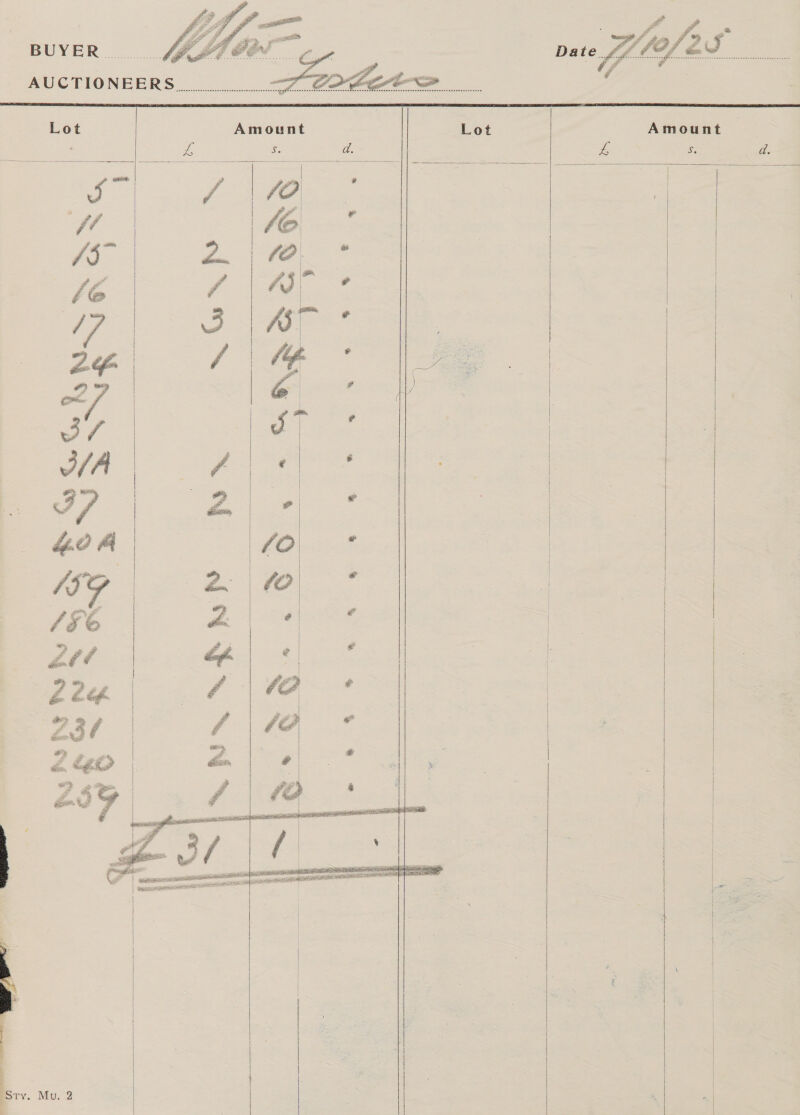 BUYER
Date 7/10/25
AUCTIONEERS Fosters
Lot Amount Lot Amount
£ s. d. £ s. d.
5 1 10 "
11 16 "
15 2 10 "
16 1 15 "
17 3 15 "
24 1 14 "
27 6 "
31 5 "
31A 1 " "
37 2 " "
40A 10 "
159 2 10 "
186 2 " "
211 4 " "
224 1 10 "
231 1 10 "
240 2 " "
259 1 10 "
£31 1 "
Sty. Mu. 2